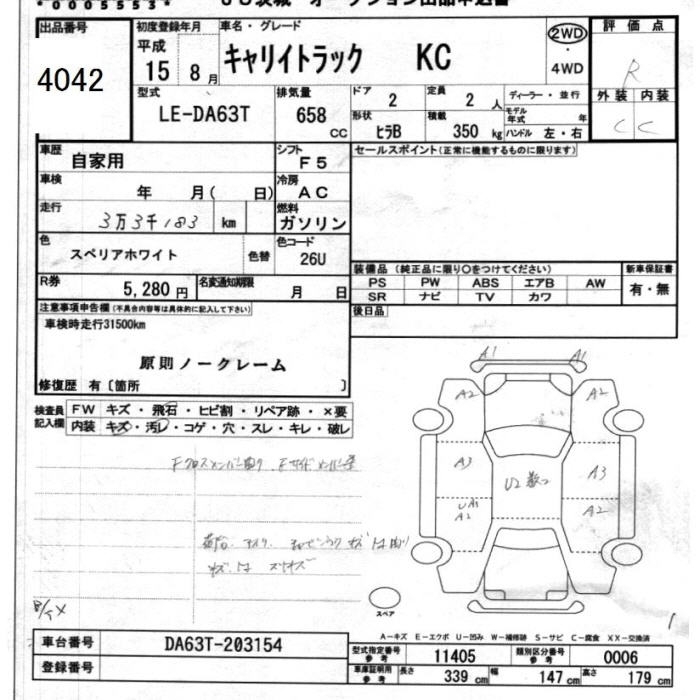 *0005553*
オークション出品申込書
出品番号
4042
初度登録年月
平成
15 8 月
車名・グレード
キャリイトラック KC
2WD
4WD
評価点
R
型式
LE-DA63T
排気量
658
cc
ドア
2
定員
2 人
ディーラー・並行
形状
ヒラB
積載
350 kg
モデル年式 年
ハンドル 左・右
外装 内装
C C
車歴
自家用
シフト
F5
セールスポイント(正常に機能するものに限ります)
車検
年 月( 日)
冷房
AC
走行
3万3千183 km
燃料
ガソリン
色
スペリアホワイト
色替
色コード
26U
装備品 (純正品に限り○をつけてください)
新車保証書
PS PW ABS エアB AW
SR ナビ TV カワ
有・無
R券
5,280 円
名変通知期限
月 日
後日品
注意事項申告欄(不具合内容等は具体的に記入して下さい)
車検時走行31500km
原則ノークレーム
修復歴 有〔箇所 〕
検査員
記入欄
FW キズ・飛石・ヒビ割・リペア跡・×要
内装 キズ・汚レ・コゲ・穴・スレ・キレ・破レ
A1 A1
A2 A2
A3 A3
U2
UA1
A2 A2
スペア
A-キズ E-エクボ U-凹み W-補修跡 S-サビ C-腐食 XX-交換済
車台番号
DA63T-203154
登録番号
型式指定番号
参考
11405
類別区分番号
参考
0006
車庫証明用
参考
長さ
339 cm
幅
147 cm
高さ
179 cm